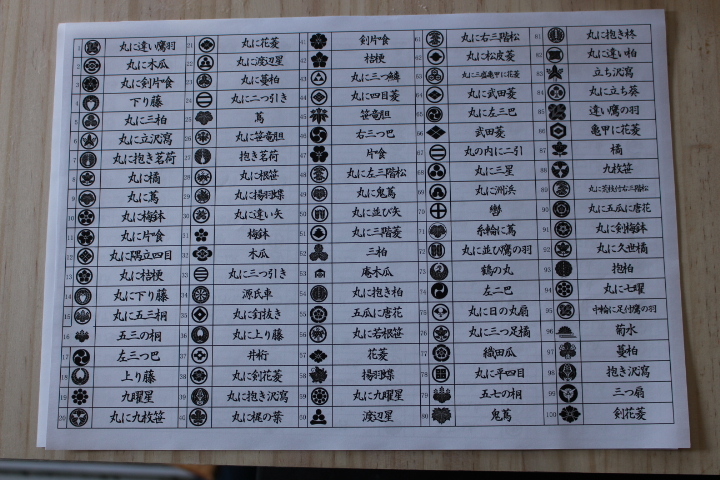 1 丸に違い鷹羽 21 丸に花菱 41 剣片喰 61 丸に右三階松 81 丸に抱き柊
2 丸に木瓜 22 丸に渡辺星 42 桔梗 62 丸に松皮菱 82 丸に違い柏
3 丸に剣片喰 23 丸に蔓柏 43 丸に三つ鱗 63 丸に三盛亀甲に花菱 83 立ち沢瀉
4 下り藤 24 丸に二つ引き 44 丸に四目菱 64 丸に武田菱 84 丸に立ち葵
5 丸に三柏 25 蔦 45 笹竜胆 65 丸に左三巴 85 違い鷹の羽
6 丸に立沢瀉 26 丸に笹竜胆 46 右三つ巴 66 武田菱 86 亀甲に花菱
7 丸に抱き茗荷 27 抱き茗荷 47 片喰 67 丸の内に二引 87 橘
8 丸に橘 28 丸に根笹 48 丸に左三階松 68 丸に三星 88 九枚笹
9 丸に蔦 29 丸に揚羽蝶 49 丸に鬼蔦 69 丸に洲浜 89 丸に荒枝付右三階松
10 丸に梅鉢 30 丸に違い矢 50 丸に並び矢 70 轡 90 丸に五瓜に唐花
11 丸に片喰 31 梅鉢 51 丸に三階菱 71 糸輪に蔦 91 丸に剣梅鉢
12 丸に隅立四目 32 木瓜 52 三柏 72 丸に並び鷹の羽 92 丸に久世橘
13 丸に桔梗 33 丸に三つ引き 53 庵木瓜 73 鶴の丸 93 抱柏
14 丸に下り藤 34 源氏車 54 丸に抱き柏 74 左二巴 94 丸に七曜
15 丸に五三桐 35 丸に剣抜き 55 五瓜に唐花 75 丸に日の丸扇 95 中輪に足付鷹の羽
16 五三の桐 36 丸に上り藤 56 丸に若根笹 76 丸に三つ足橘 96 菊水
17 左三つ巴 37 井桁 57 花菱 77 織田瓜 97 蔓柏
18 上り藤 38 丸に剣花菱 58 揚羽蝶 78 丸に平四目 98 抱き沢瀉
19 九曜星 39 丸に抱き沢瀉 59 丸に九曜星 79 五七の桐 99 三つ扇
20 丸に九枚笹 40 丸に梶の葉 60 渡辺星 80 鬼蔦 100 剣花菱